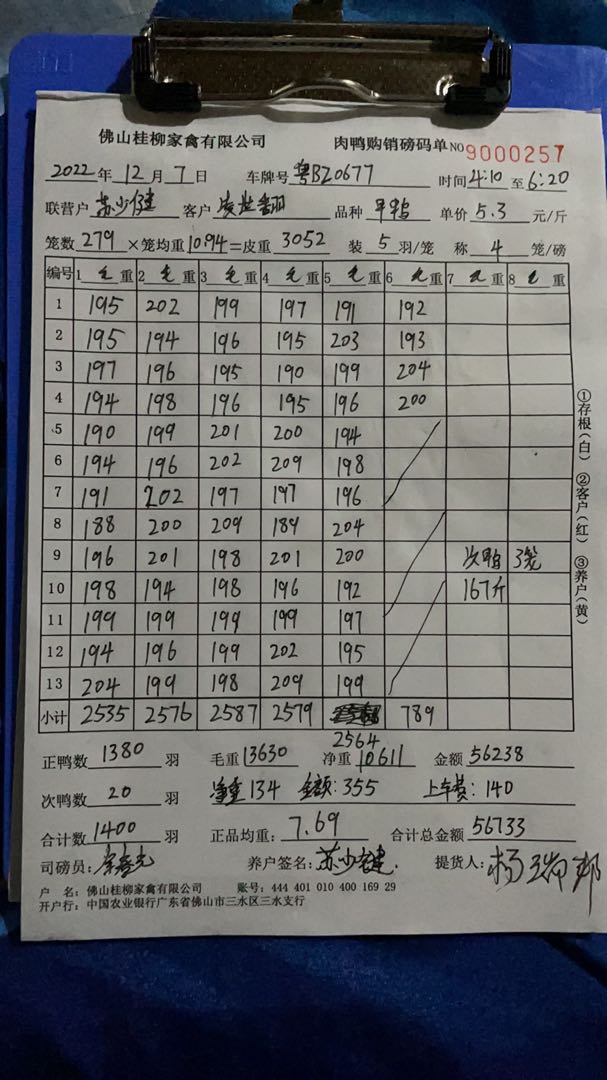 佛山桂柳家禽有限公司 肉鸭购销磅码单 NO 9000257
2022年12月7日 车牌号 粤BZ0677 时间 4:10 至 6:20
联营户 苏少健 客户 品种 单价 5.3 元/斤
笼数 279 ×笼均重 10.94 =皮重 3052 装 5 羽/笼 称 4 笼/磅
编号 1 毛重 2 毛重 3 毛重 4 毛重 5 毛重 6 毛重 7 毛重 8 毛重
1 195 202 199 197 191 192
2 195 194 196 195 203 193
3 197 196 195 190 199 204
4 194 198 196 195 196 200
5 190 199 201 200 194
6 194 196 202 209 198
7 191 202 197 197 196
8 188 200 209 189 204
9 196 201 198 201 200 次鸭 3笼
10 198 194 198 196 192 167斤
11 199 199 199 199 197
12 194 196 199 202 195
13 204 199 198 209 199
小计 2535 2576 2587 2579 789
2564
正鸭数 1380 羽 毛重 13630 净重 10611 金额 56238
次鸭数 20 羽 净重 134 金额: 355 上车费: 140
合计数 1400 羽 正品均重: 7.69 合计总金额 56733
司磅员: 养户签名: 苏少健 提货人: 杨瑞邦
户 名: 佛山桂柳家禽有限公司 账号: 444 401 010 400 169 29
开户行: 中国农业银行广东省佛山市三水区三水支行
①存根(白) ②客户(红) ③养户(黄)